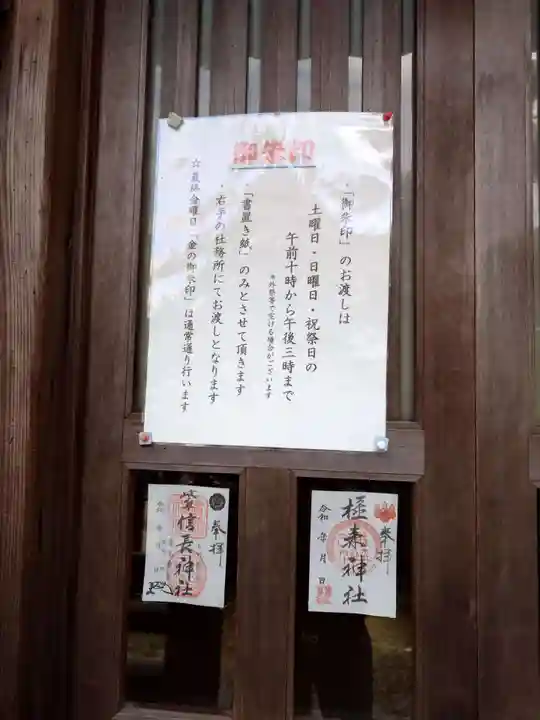 御朱印
・「御朱印」のお渡しは
土曜日・日曜日・祝祭日の
午前十時から午後三時まで
※外祭等で空ける場合がございます
・「書置き紙」のみとさせて頂きます
・右手の社務所にてお渡しとなります
☆最終金曜日「金の御朱印」は通常通り行います
奉拝
神社
令和 年 月 日
奉拝
信長神社